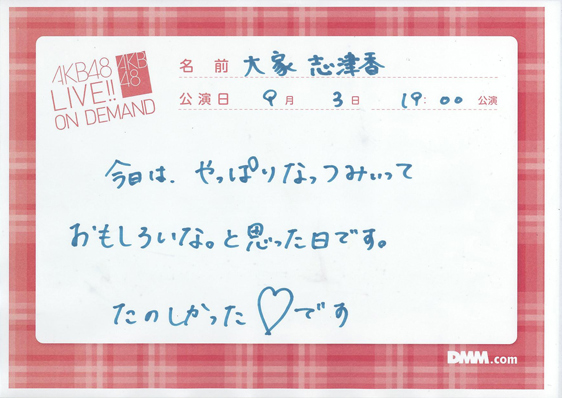 AKB48
LIVE!!
ON DEMAND
AKB
48
名前 大家 志津香
公演日 9月 3日 19:00 公演
今日は、やっぱりなっつみぃって
おもしろいな。と思った日です。
たのしかった♡です
DMM.com